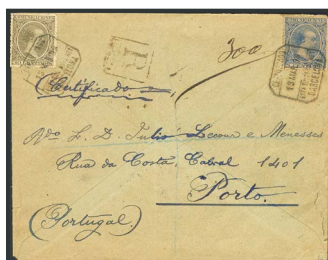 R
300
Certificado
D. Julio Lecona e Menesses
Rua da Costa Cabral 1401
Porto.
(Portugal)